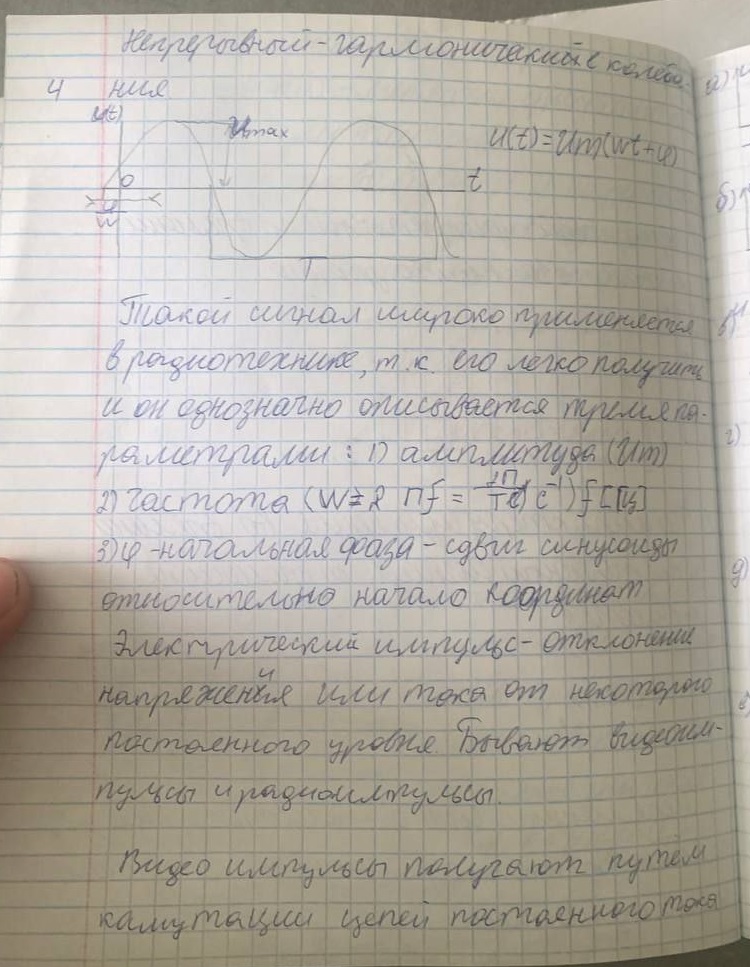 Непрерывный - гармонические колеба-
4 ния
u(t)
Umax
u(t) = Um(wt+φ)
0
t
φ
w
T
Такой сигнал широко применяется
в радиотехнике, т.к. его легко получить
и он однозначно описывается тремя па-
раметрами: 1) амплитуда (Um)
2) частота (W=2 Пf = 2П/T c^-1) f [Гц]
3) φ - начальная фаза - сдвиг синусоиды
относительно начало координат
Электрический импульс - отклонение
напряжения или тока от некоторого
постоенного уровня. Бывают видеоим-
пульсы и радиоимпульсы.
Видео импульсы получают путём
камутации цепей постоенного тока
а)
б)
в)
г)
д)